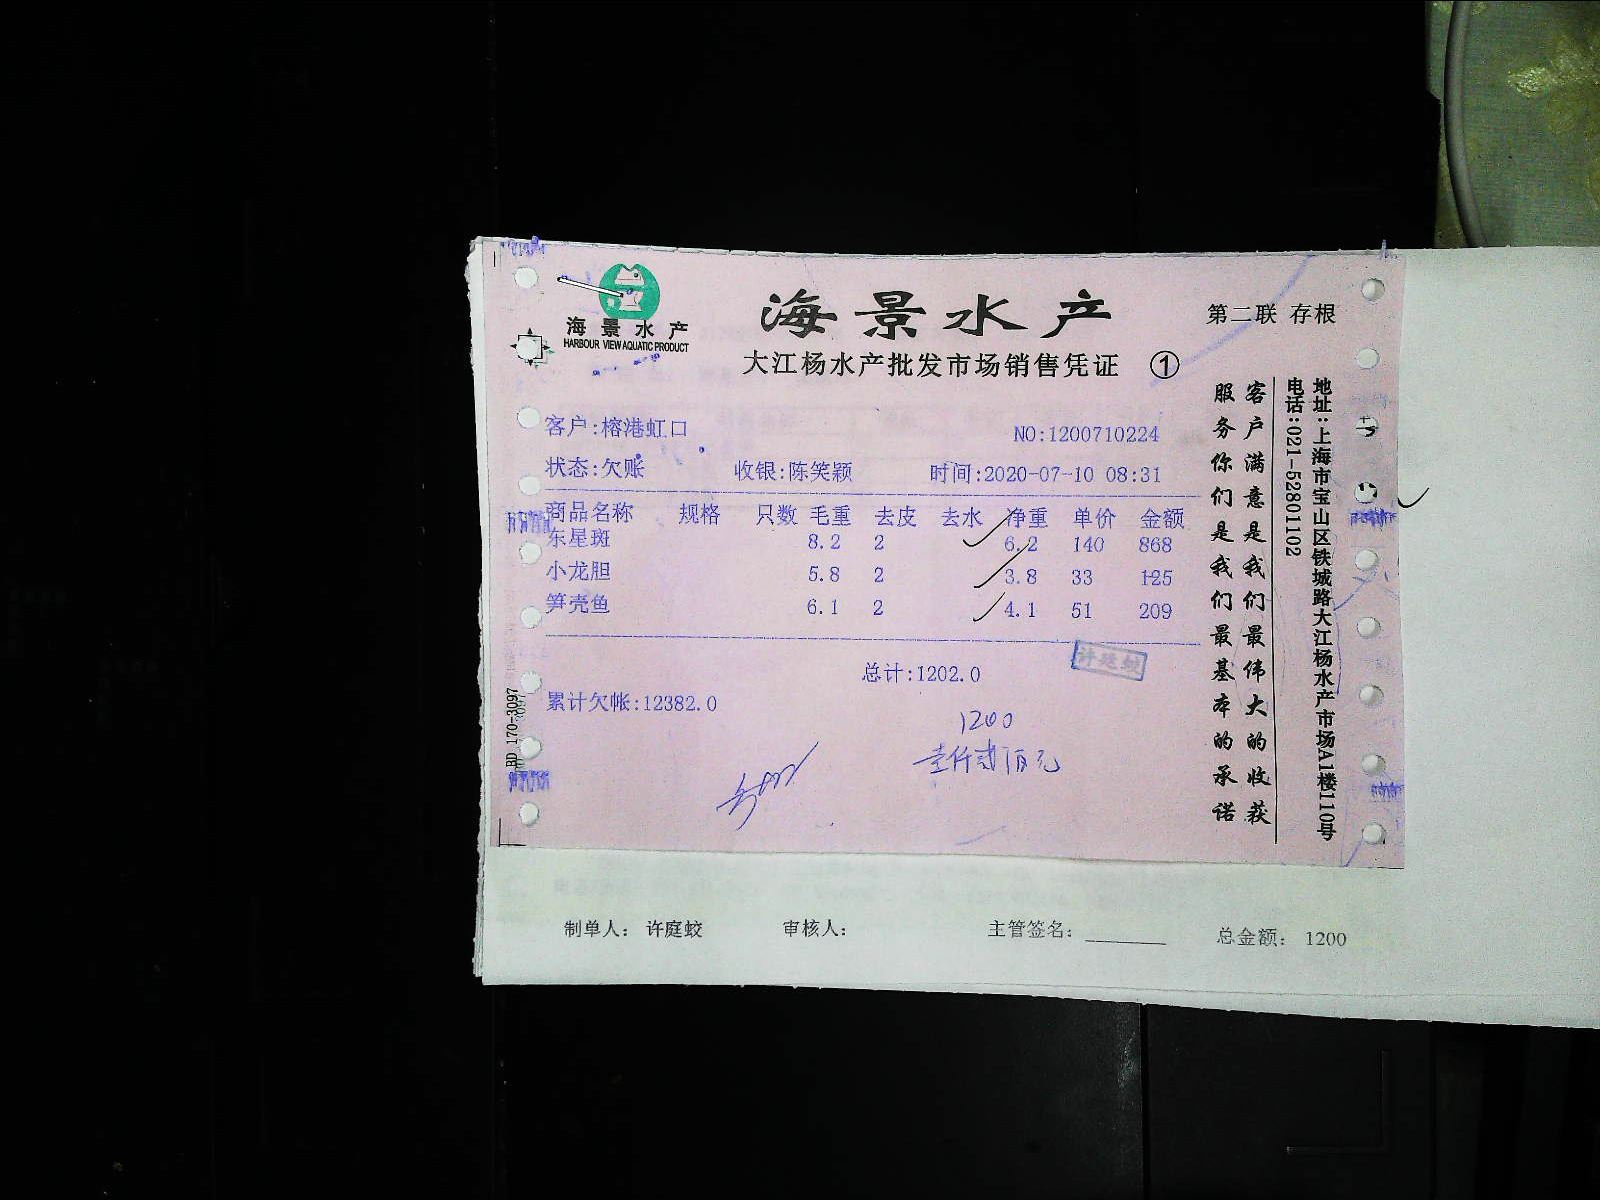 海景水产
HARBOUR VIEW AQUATIC PRODUCT
海景水产
第二联 存根
大江杨水产批发市场销售凭证 ①
客户:榕港虹口
NO:1200710224
状态:欠账 收银:陈笑颖 时间:2020-07-10 08:31
商品名称 规格 只数 毛重 去皮 去水 净重 单价 金额
东星斑 8.2 2 6.2 140 868
小龙胆 5.8 2 3.8 33 125
笋壳鱼 6.1 2 4.1 51 209
总计:1202.0
许廷蛟
累计欠帐:12382.0
1200
壹仟贰佰元
客户满意是我们最伟大的收获
服务你们是我们最基本的承诺
地址:上海市宝山区铁城路大江杨水产市场A1楼110号
电话:021-52801102
BD 170-3097
制单人: 许庭蛟 审核人: 主管签名: 总金额: 1200